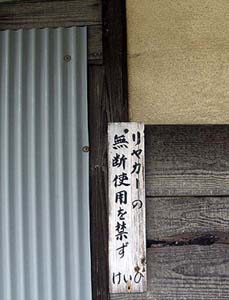 リヤカーの
無断使用を禁ず
けいび